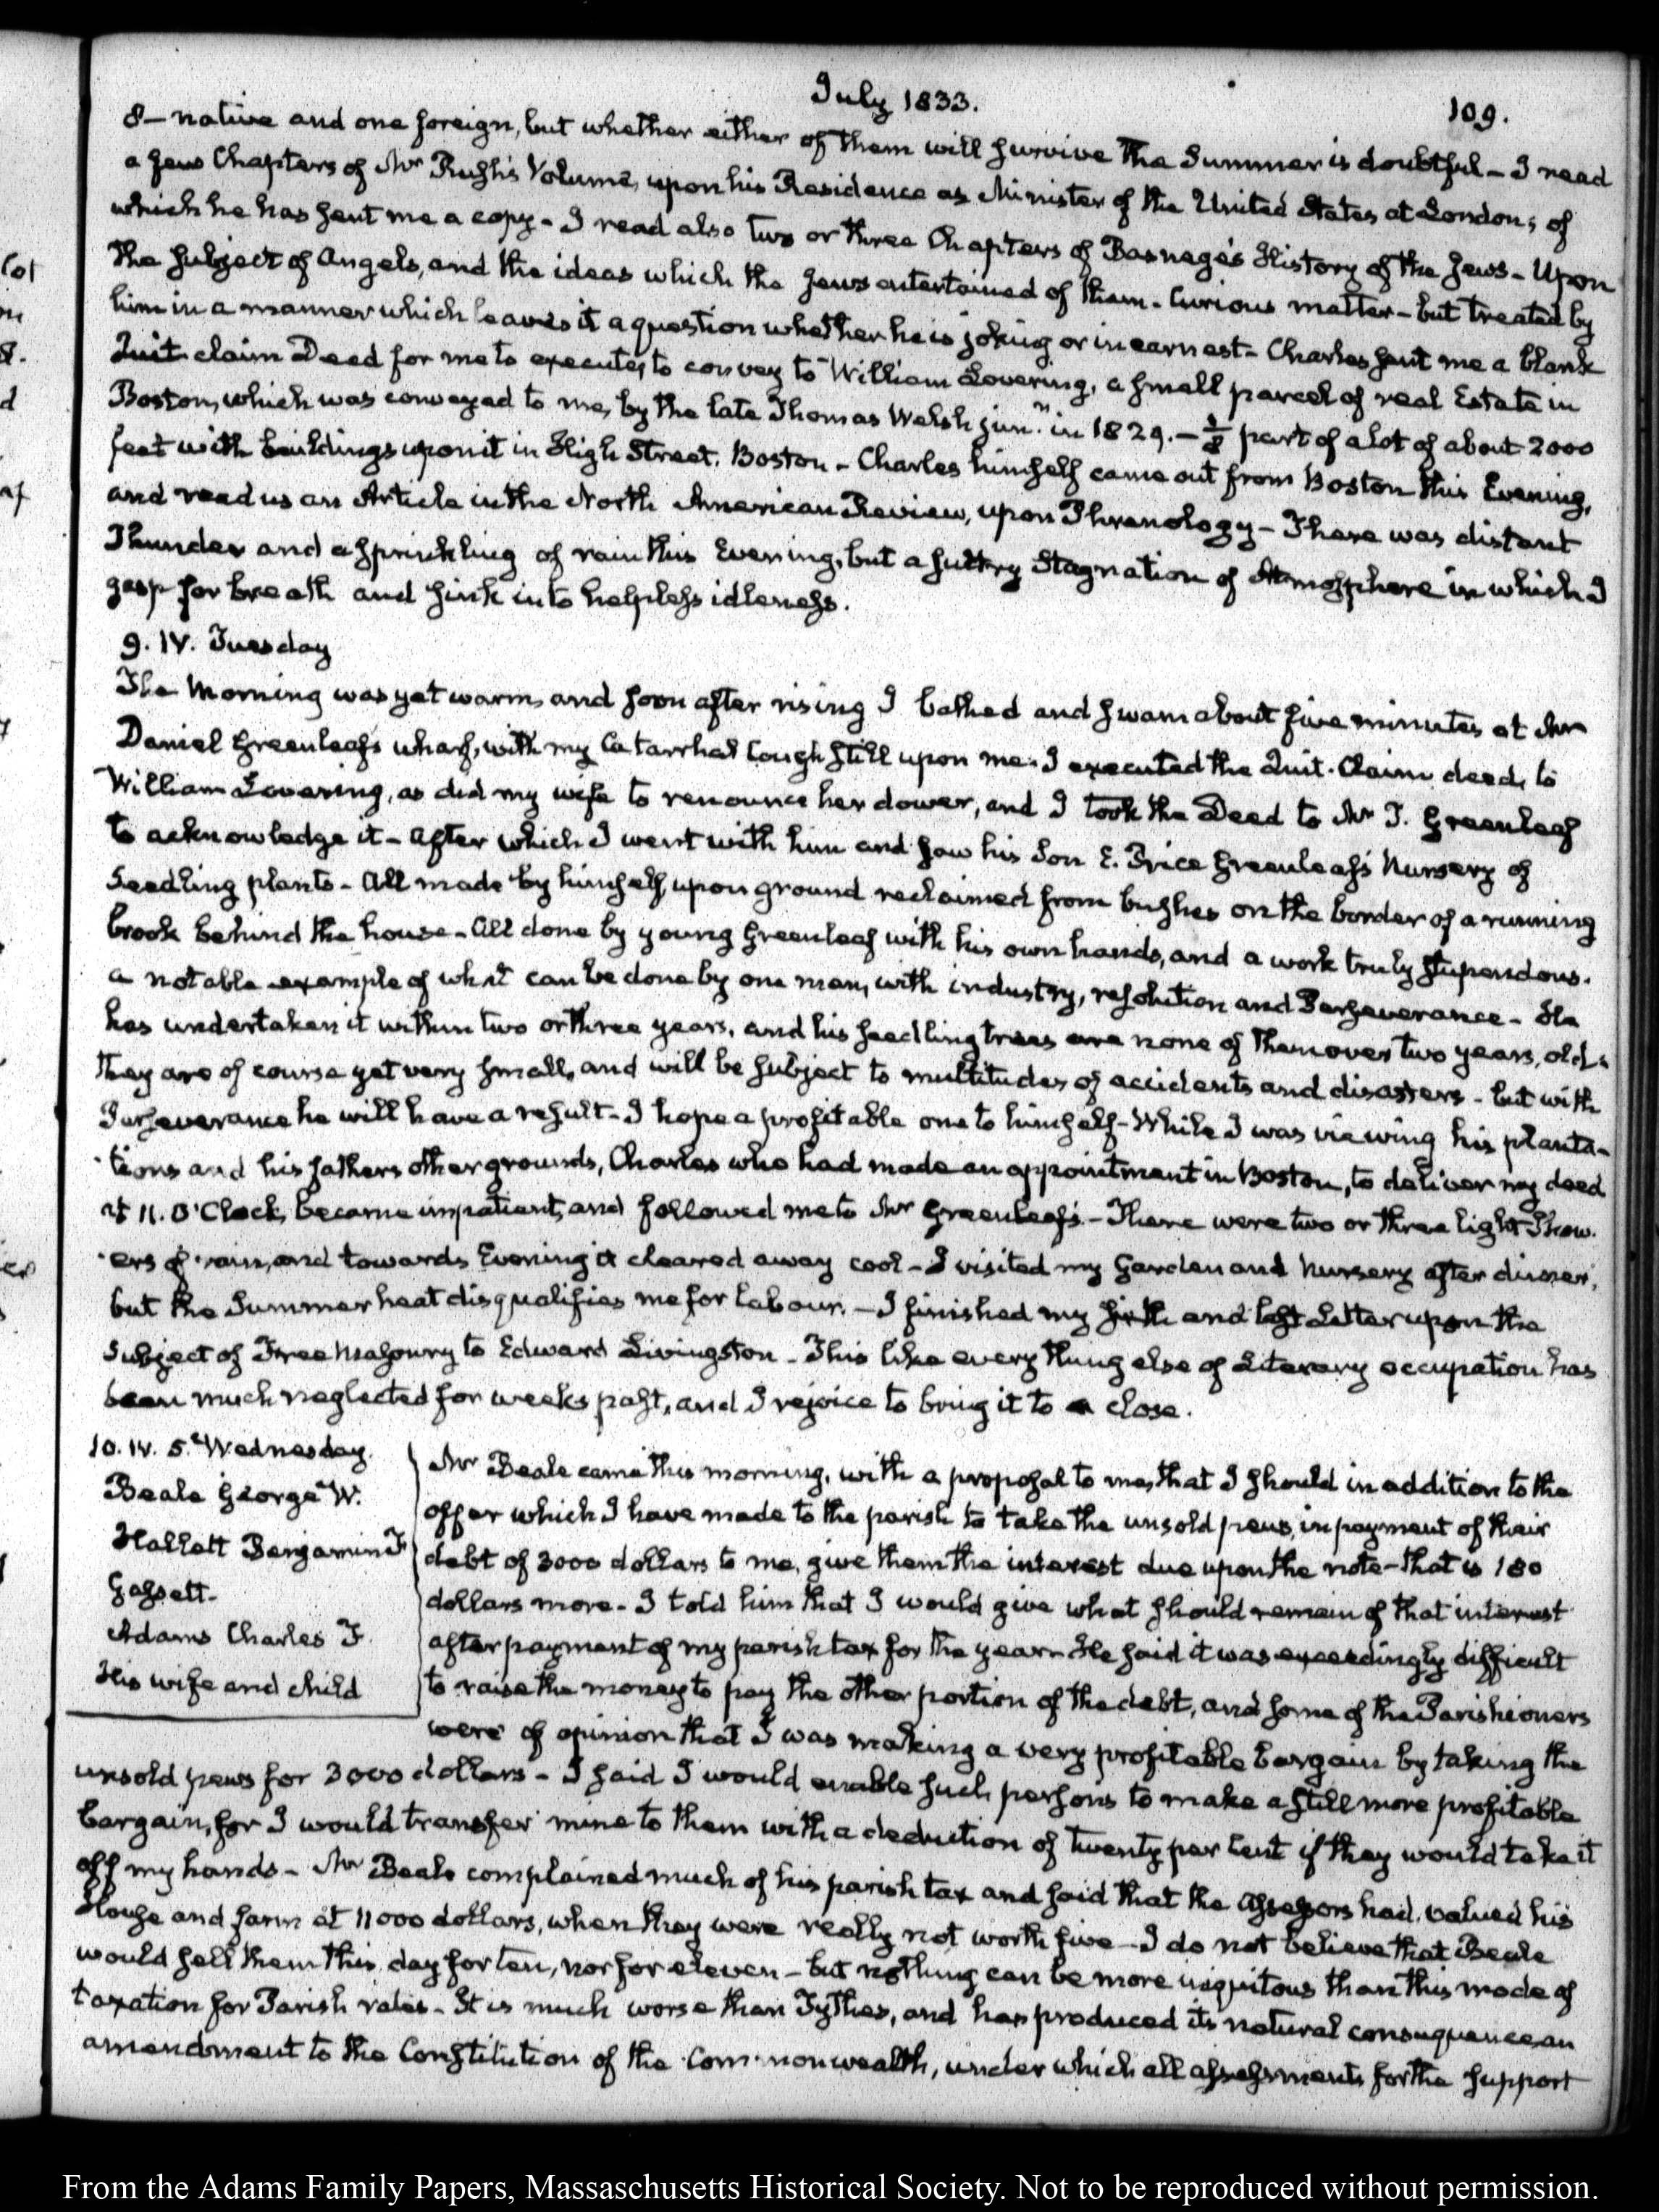 July 1833.
109.
8 — native and one foreign, but whether either of them will survive the Summer is doubtful — I read
a few Chapters of Mr Rush's Volume, upon his Residence as Minister of the United States at London; of
which he has sent me a copy — I read also two or three Chapters of Basnage's History of the Jews — Upon
the subject of Angels, and the ideas which the Jews entertained of them — Curious matter — but treated by
him in a manner which leaves it a question whether he is joking or in earnest — Charles sent me a blank
Quit claim Deed for me to execute, to convey to William Lovering, a small parcel of real Estate in
Boston, which was conveyed to me, by the late Thomas Welsh junr. in 1829. — 1/8 part of a lot of about 2000
feet with buildings upon it in High Street, Boston — Charles himself came out from Boston this Evening,
and read us an Article in the North American Review, upon Phrenology — There was distant
Thunder and a sprinkling of rain this Evening, but a sultry Stagnation of Atmosphere in which I
gasp for breath and sink into helpless idleness.
9. IV. Tuesday
The Morning was yet warm, and soon after rising I bathed and swam about five minutes at Mr
Daniel Greenleaf's wharf, with my Catarrhal Cough still upon me. I executed the Quit-Claim deed, to
William Lovering, as did my wife to renounce her dower, and I took the Deed to Mr T. Greenleaf
to acknowledge it — After which I went with him and saw his Son E. Price Greenleaf's Nursery of
Seedling plants — All made by himself, upon ground reclaimed from bushes on the border of a running
brook behind the house — All done by young Greenleaf with his own hands, and a work truly stupendous.
a notable example of what can be done by one man, with industry, resolution and Perseverance — He
has undertaken it within two or three years, and his seedling trees are none of them over two years, old.
they are of course yet very small, and will be subject to multitudes of accidents and disasters — but with
Perseverance he will have a result — I hope a profitable one to himself — While I was viewing his planta-
-tions and his fathers other grounds, Charles who had made an appointment in Boston, to deliver my deed
at 11. O'Clock, became impatient, and followed me to Mr Greenleaf's — There were two or three light Show-
-ers of rain, and towards Evening it cleared away cool — I visited my Garden and Nursery after dinner,
but the Summer heat disqualifies me for labour. — I finished my sixth and last Letter upon the
Subject of Free Masonry to Edward Livingston — This like every thing else of Literary occupation has
been much neglected for weeks past, and I rejoice to bring it to a close.
10. IV. 5. Wednesday.
Beale George W.
Hallett Benjamin F
Gassett.
Adams Charles F.
His wife and child
Mr Beale came this morning, with a proposal to me, that I should in addition to the
offer which I have made to the parish to take the unsold pews, in payment of their
debt of 3000 dollars to me, give them the interest due upon the note — that is 180
dollars more — I told him that I would give what should remain of that interest
after payment of my parish tax for the year — He said it was exceedingly difficult
to raise the money to pay the other portion of the debt, and some of the Parishioners
were of opinion that I was making a very profitable bargain by taking the
unsold pews for 3000 dollars — I said I would enable such persons to make a still more profitable
bargain, for I would transfer mine to them with a deduction of twenty per Cent if they would take it
off my hands — Mr Beale complained much of his parish tax and said that the Assessors had valued his
House and farm at 11000 dollars, when they were really not worth five — I do not believe that Beale
would sell them this day for ten, nor for eleven — but nothing can be more iniquitous than this mode of
taxation for Parish rates — It is much worse than Tythes, and has produced its natural consequence, an
amendment to the Constitution of the Commonwealth, under which all assessments for the support
From the Adams Family Papers, Massachusetts Historical Society. Not to be reproduced without permission.